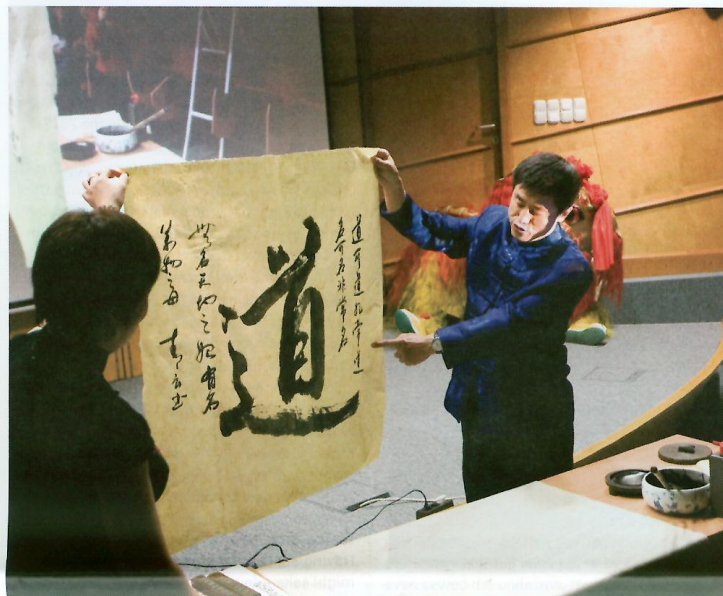 道可道非常道
名可名非常名
道
無名天地之始有名
萬物之母